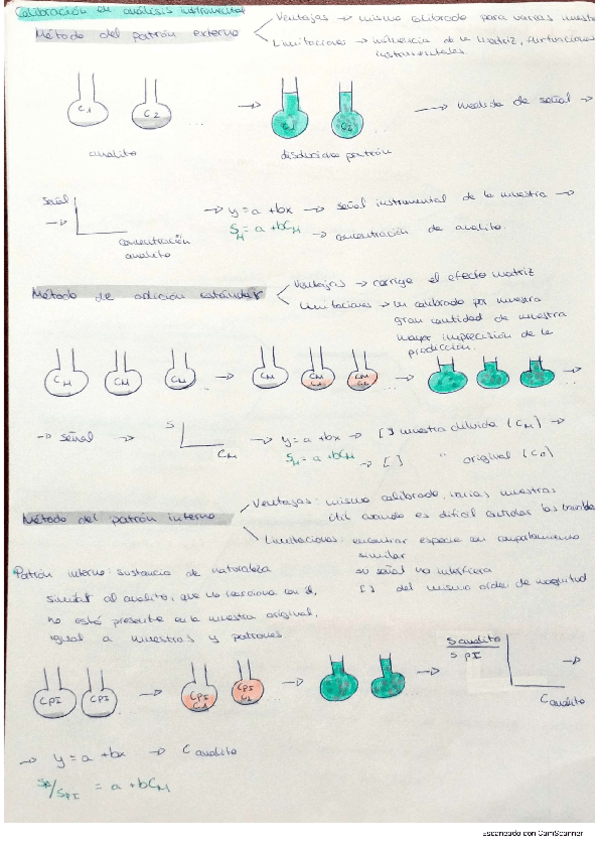 Calibración en análisis instrumental
Método del patrón externo
Ventajas → mismo calibrado para varias
Limitaciones → influencia de la matriz, fluctuaciones
instrumentales.
C1
C2
...
→
C1
C2
...
→ medida de señal →
analito
disoluciones patrón
señal
→
concentración
analito
→ y = a + bx → señal instrumental de la muestra →
SM = a + bCM → concentración de analito.
Método de adición estándar
Ventajas → corrige el efecto matriz
Limitaciones → un calibrado por muestra
gran cantidad de muestra
mayor imprecisión de la
producción.
CM
CM
CM
→
CM
CM C1
CM C2
→
→
→ señal →
S
CM
→ y = a + bx → [ ] muestra diluida (CM) →
SM = a + bCM → [ ] " original (C0)
Método del patrón interno
Ventajas: mismo calibrado, varias muestras
útil cuando es difícil controlar las
Limitaciones: encontrar especie con comportamiento
similar
su señal no interfiera
[ ] del mismo orden de magnitud
Patrón interno: sustancia de naturaleza
similar al analito, que no reacciona con él,
no esté presente en la muestra original,
igual a muestras y patrones
CPI
CPI
...
→
CPI C1
CPI C2
...
→
...
→
S analito
S PI
C analito
→
→ y = a + bx → C analito
SA/SPI = a + bCM
Escaneado con CamScanner